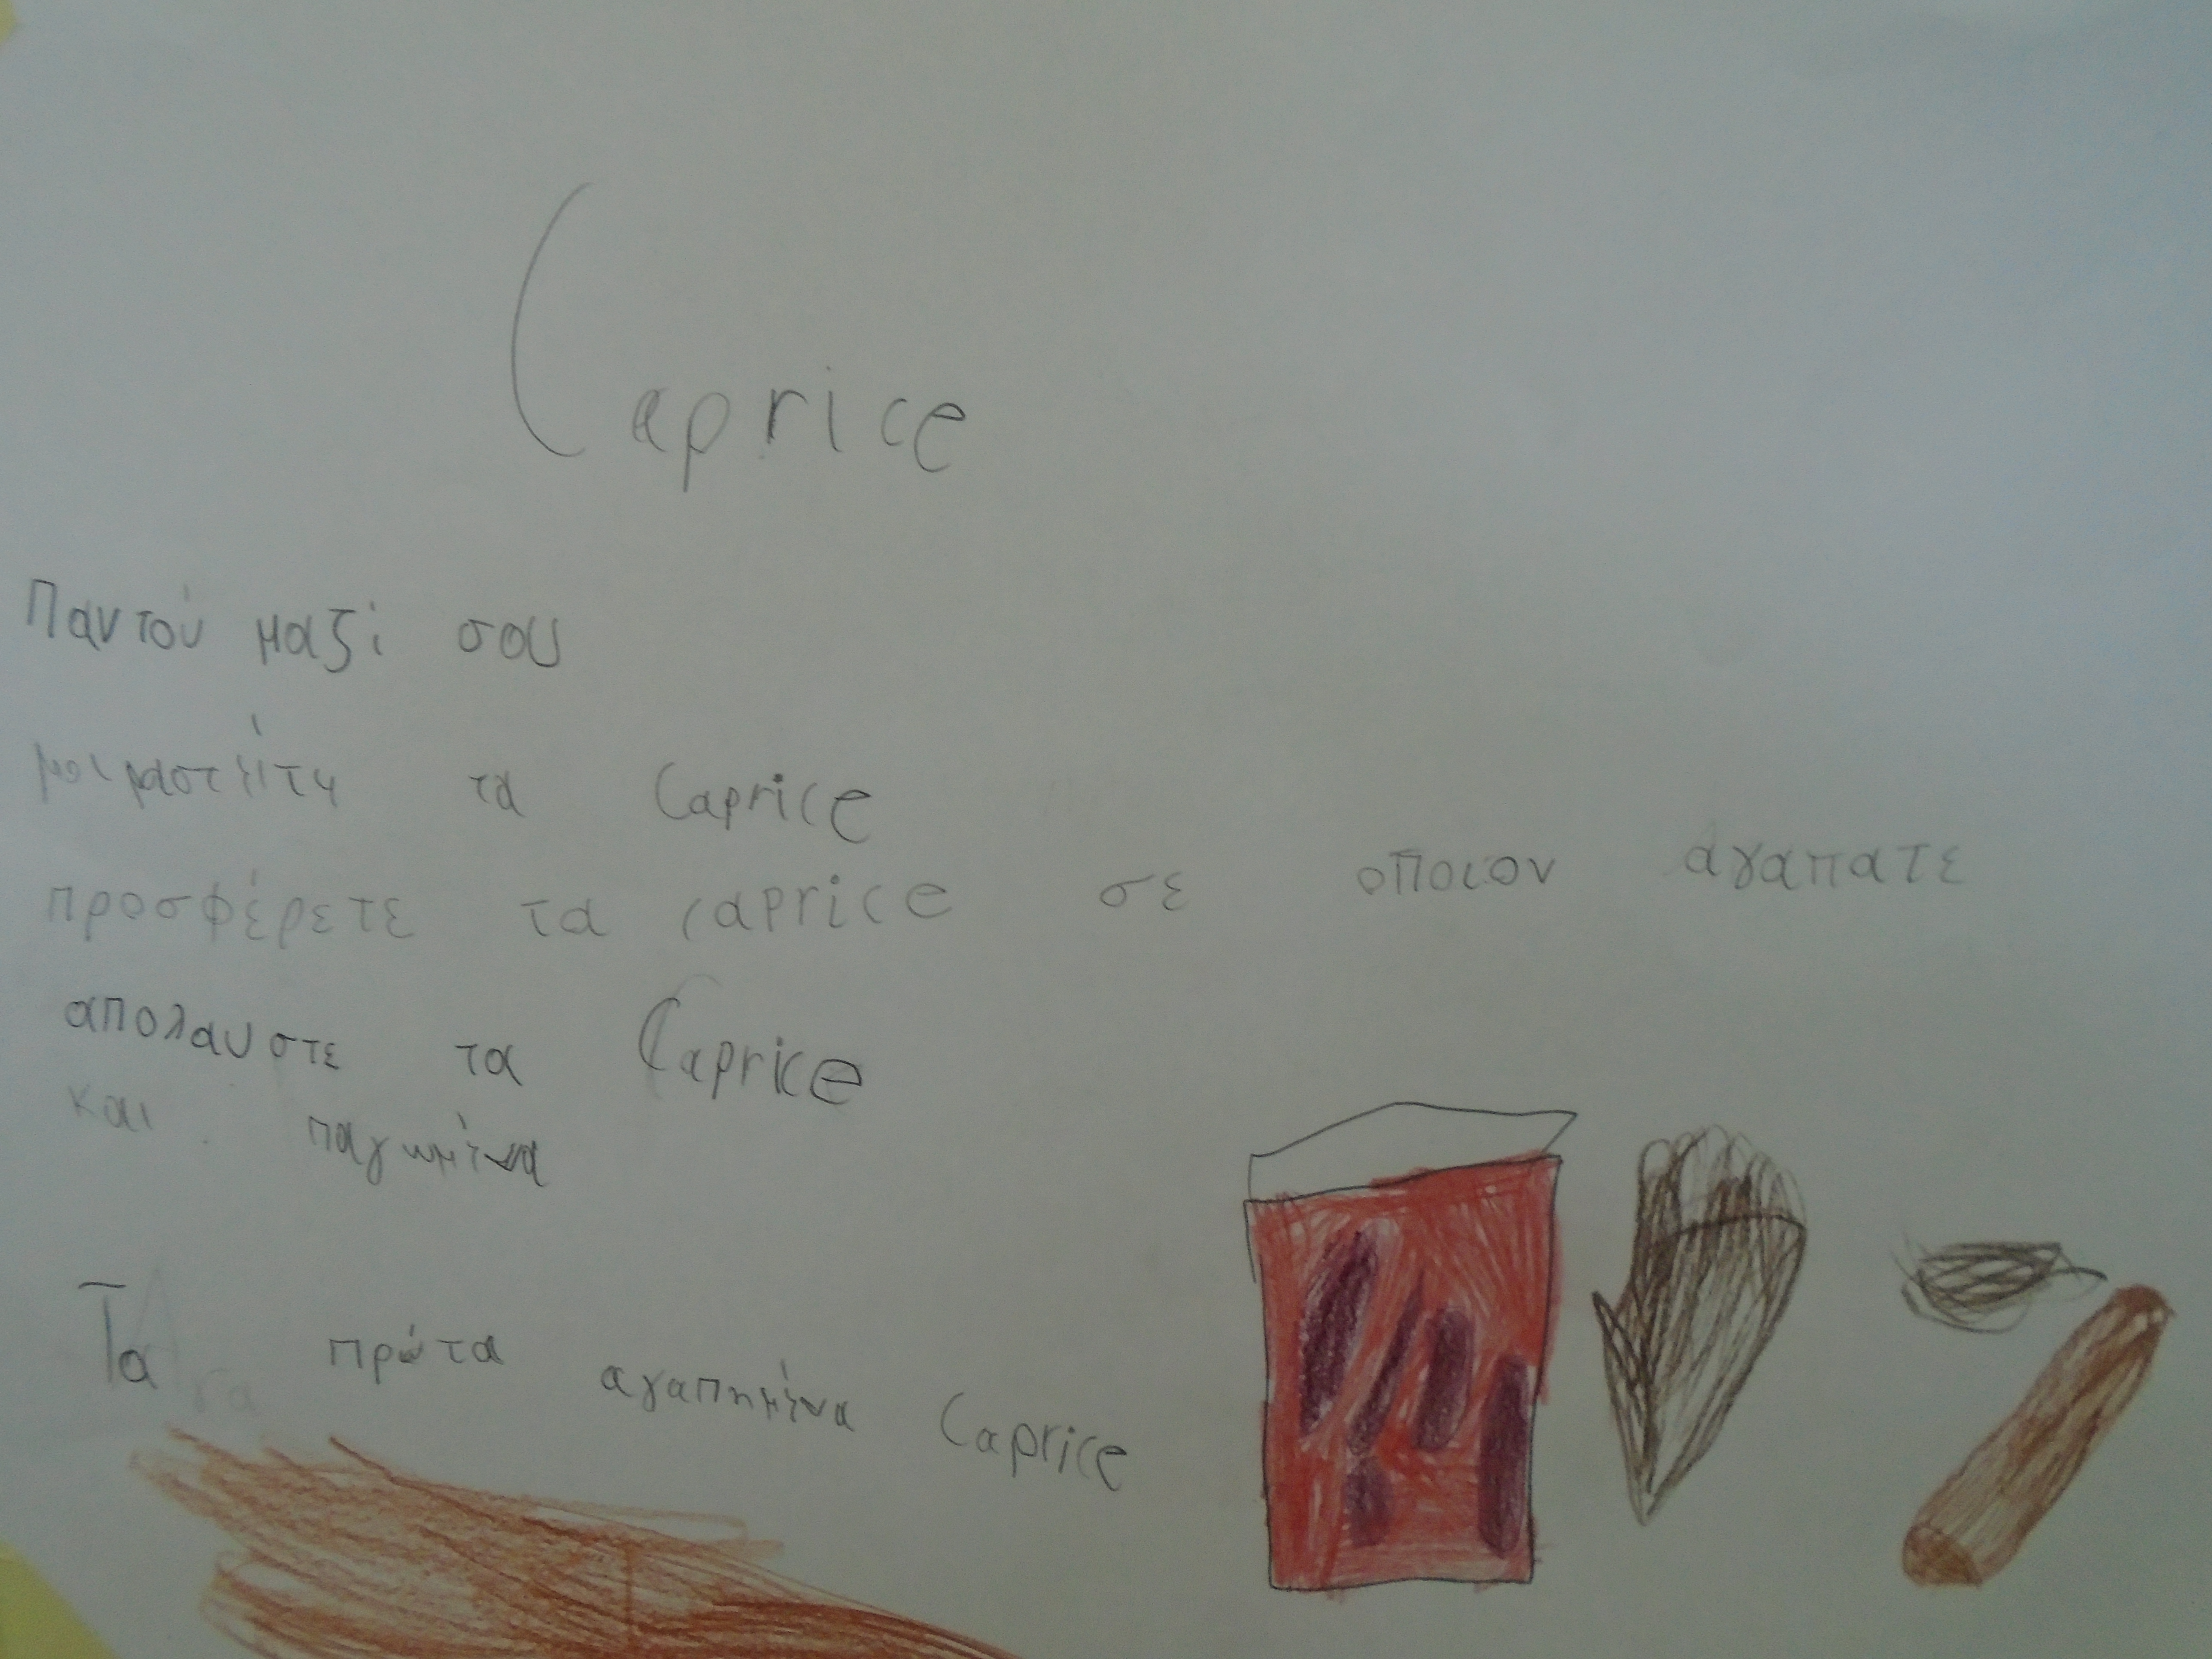 Caprice
Παντού μαζί σου
μοιραστείτε τα Caprice
προσφέρετε τα caprice σε οποιον αγαπατε
απολαυστε τα Caprice
και παγωμένα
Τα πρώτα αγαπημένα Caprice